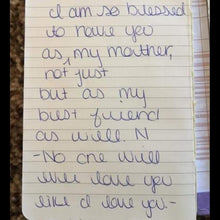 I am so blessed
to have you
as my mother,
not just
but as my
best friend
as well. N
-No one will
ever love you
like I love you.-